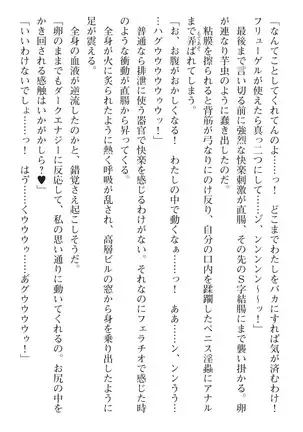 「なんてことしてくれてんのよ……っ！　どこまでわたしをバカにすれば気が済むわけ！
フリューゲルが使えたら真っ二つにして……ゾ、ンンンン〜〜ッ！」
　最後まで言い切る前に強烈な快楽刺激が直腸、その先のＳ字結腸にまで襲い掛かる。卵
が連なり芋虫のように蠢き出したのだ。
　粘膜を擦られると背筋が弓なりにのけ反り、自分の口内を蹂躙したペニス淫蟲にアナル
まで弄ばれてしまう。
「お、お腹がおかしくなる！　わたしの中で動くなぁ……っ！　ああ……、ンンうう……
…ハグウウウウゥゥゥ！」
　普通なら排泄に使う器官で快楽を感じるわけがない。それなのにフェラチオで感じた時
のような衝動が直腸から昇ってくる。
　全身が火に炙られたように熱く呼吸が乱され、高層ビルの窓から身を乗り出したように
足が震える。
　全身の血液が逆流したのかと、錯覚さえ起こしそうだ。
「卵のままでもダークエナジーに反応して、私の思い通りに動いてくれるの。お尻の中を
かき回される感触はいかがかしら？♥」
「いいわけないでしょ……っ！　はぅ……くウウウゥ……あグウウウウゥっ！」